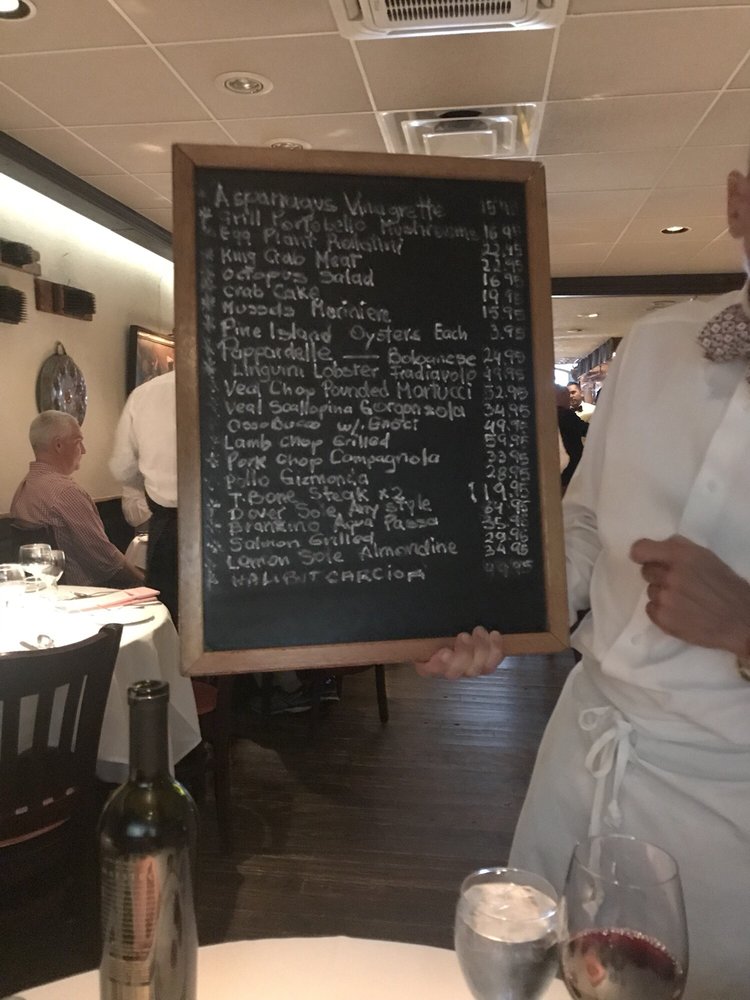 Asparugus Vinagrette 15.95
Grill Portobello Mushrooms 16.95
Egg Plant Rollatini 22.95
King Crab Meat 22.95
Octopus Salad 16.95
Crab Cake 19.95
Mussels Mariniere 15.95
Pine Island Oysters Each 3.95
Pappardelle — Bolognese 24.95
Linguini Lobster Fradiavolo 49.95
Veal Chop Pounded Martucci 52.95
Veal Scallopina Gorgonzola 34.95
Osso Bucco w/. Gnoci 49.95
Lamb Chop Grilled 59.95
Pork Chop Campagnola 33.95
Pollo Gizmonda 28.95
T.Bone Steak x2 119.95
Dover Sole, Any style
Branzino Aqua Pazza 35.95
Salmon Grilled 29.95
Lemon Sole Almondine 34.95
HALIBIT CARCIOFI